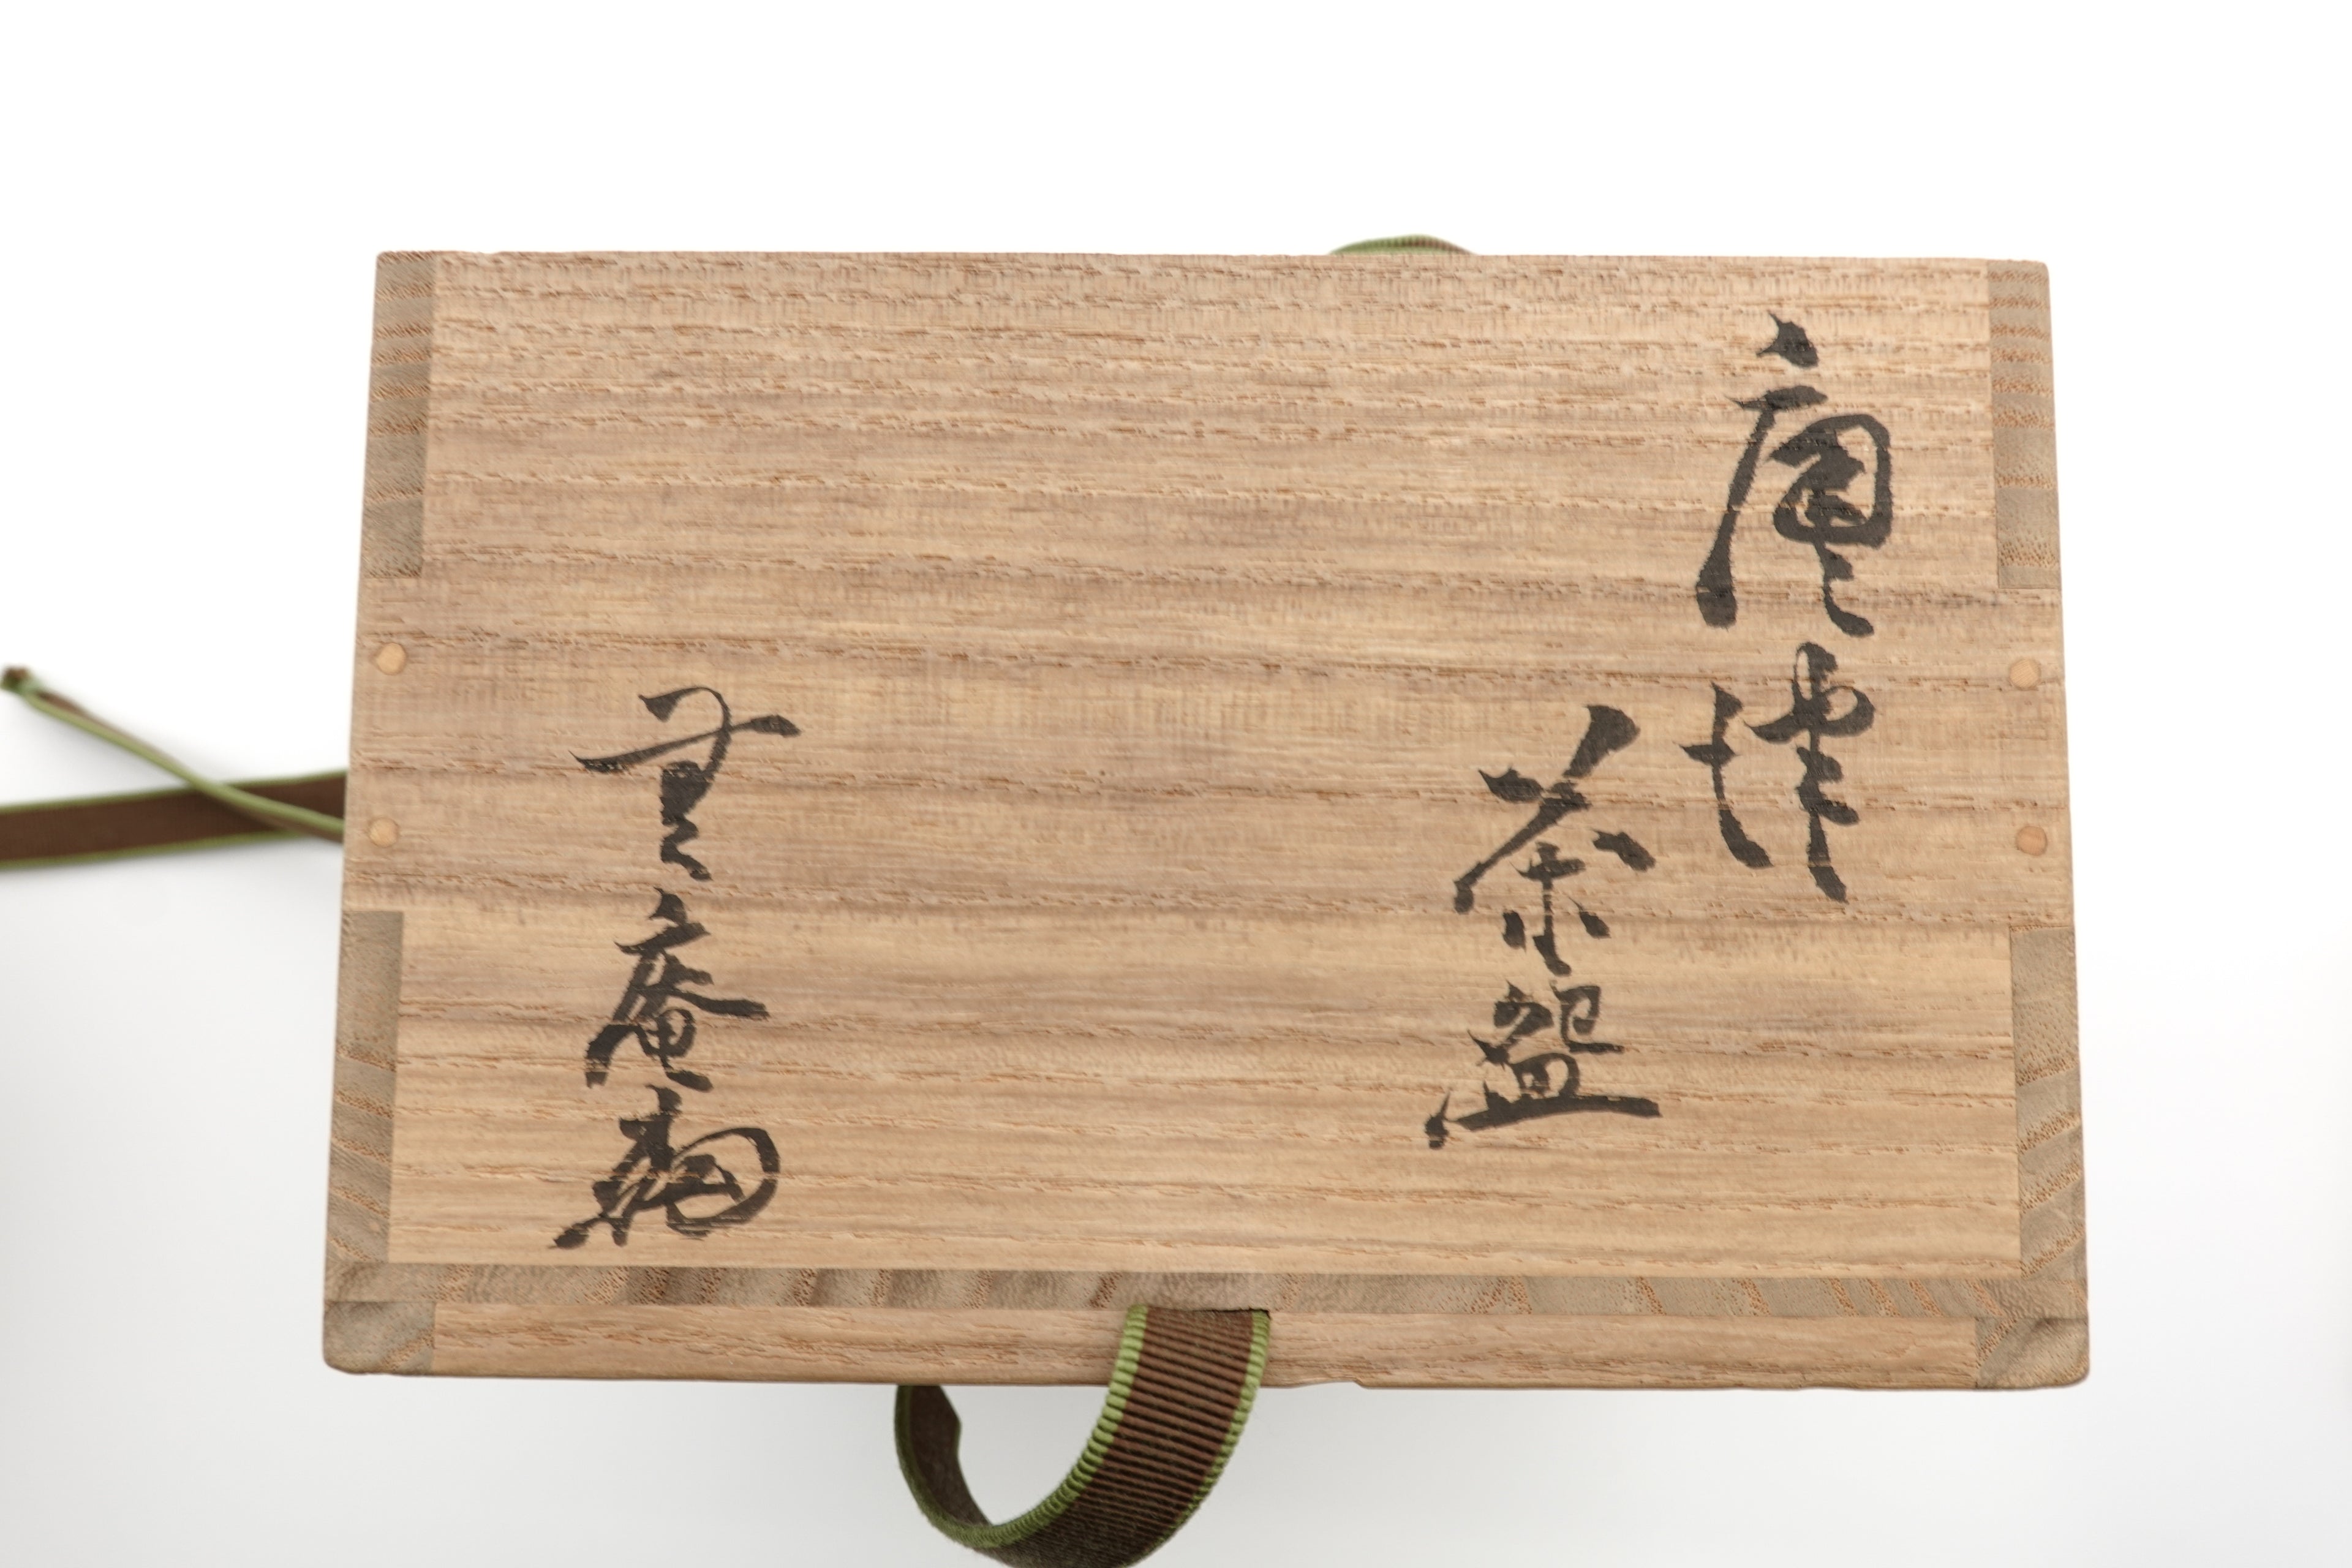 唐津
茶盌
無庵